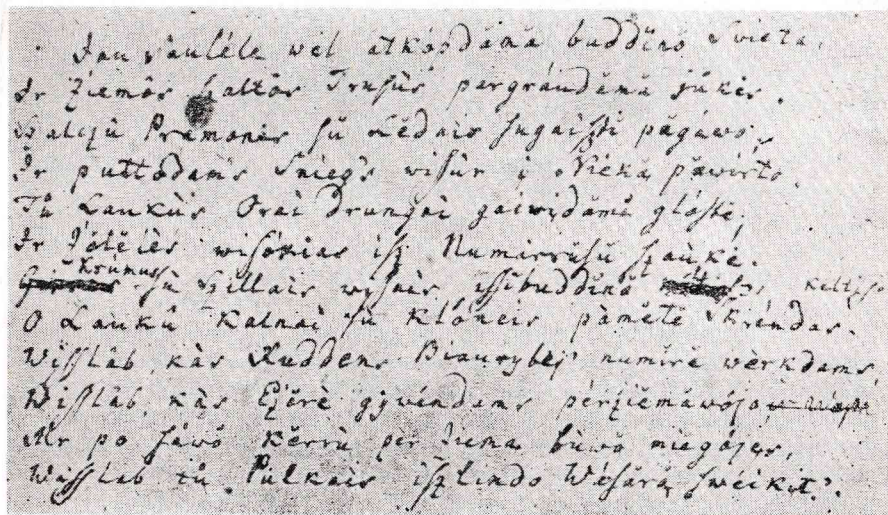 Jau Saulele wėl atkopdămă buddĭnŏ Swieta,
Ir Ziemôs ſzaltôs Trusùs pargráudămă jũkės.
Szalcjû Pramonės sù Lĕdais sugaiſzti păgáwo,
Ir puttodams Snieg's wisùr į Nieką păwirto.
Tũ Laukùs Orai drungni gaiwĭdămi glóſtė,
Ir Żŏlĕlės wisókias iſz Numirruſû ſzaũkė.
Krúmus sù Szillais wiſais iſſibuddĭnŏ keltis.
O Laukû Kalnai sù Klóneis pàmĕtė Skrándas.
Wiſſlab, kàs Ruddens Biaurybėj' numirė wèrkdams,
Wiſſlab, kàs Ejĕrė gywéndams pérżiĕmăwójo
Ar po sáwŏ Kĕrrù per Ziema bùwŏ miegójęs,
Wiſſlab tũ Pulkais iſzlindo Wăsărą swéikĭt'.